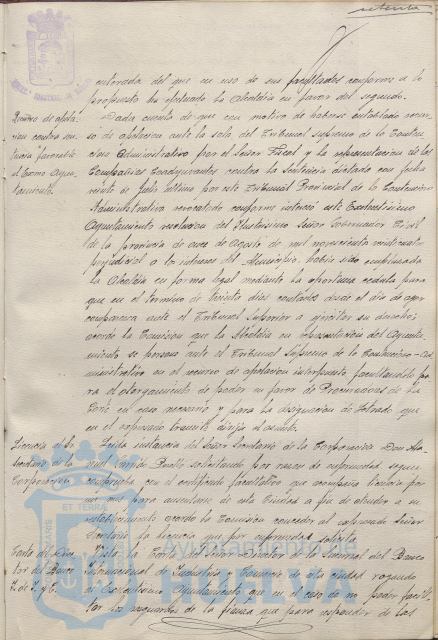 setenta
enterada del que en uso de sus facultades conforme a lo
propuesto ha efectuado la Alcaldia en favor del segundo.
Recurso de apela-
cion contra sen-
tencia favorable
al Excmo Ayun-
tamiento.
Dada cuenta de que con motivo de haberse entablado recur-
so de apelacion ante la sala del Tribunal Supremo de lo Conten-
cioso Administrativo por el Señor Fiscal y la representacion de las
Compañias Coadyuvantes contra la sentencia dictada con fecha
veinte de Julio ultimo por este Tribunal Provincial de lo Contencioso
Administrativo revocatoria conforme interesó este Excelentisimo
Ayuntamiento resolucion del Ilustrisimo Señor Gobernador Civil
de la provincia de once de Agosto de mil novecientos veinticuatro
perjudicial a los intereses del Municipio, habia sido emplazada
la Alcaldia en forma legal mediante la oportuna cedula para
que en el termino de treinta dias contados desde el dia de ayer
comparezca ante el Tribunal Superior a ejercitar su derecho;
acordó la Comision que la Alcaldia en representacion del Ayunta-
miento se persone ante el Tribunal Supremo de lo Contencioso-Ad
ministrativo en el recurso de apelacion interpuesto facultandole pa
ra el otorgamiento de poder en favor de Procuradores de la
Corte en caso necesario y para la designacion de Letrado que
en el expresado tramite dirija el asunto.
Licencia al Se-
cretario de la
Corporacion
Leida instancia del Señor Secretario de la Corporacion Don
Garrido solicitando por razon de enfermedad segun
comprueba con el certificado facultativo que acompaña licencia por
un mes para ausentarse de esta Ciudad a fin de atender a su
restablecimiento acordó la Comision conceder al expresado Señor
Secretario la licencia que por enfermedad solicita.
Carta del Direc
tor del Banco
I. de I. y C.
Leida la Carta del Director de la Sucursal del Banco
Internacional de Industria y Comercio de esta ciudad rogando
al Excelentisimo Ayuntamiento que en el caso de no poder facili
tar los resguardos de la fianza que para responder de los
ET TERRA
Ayuntamiento de
HUELVA